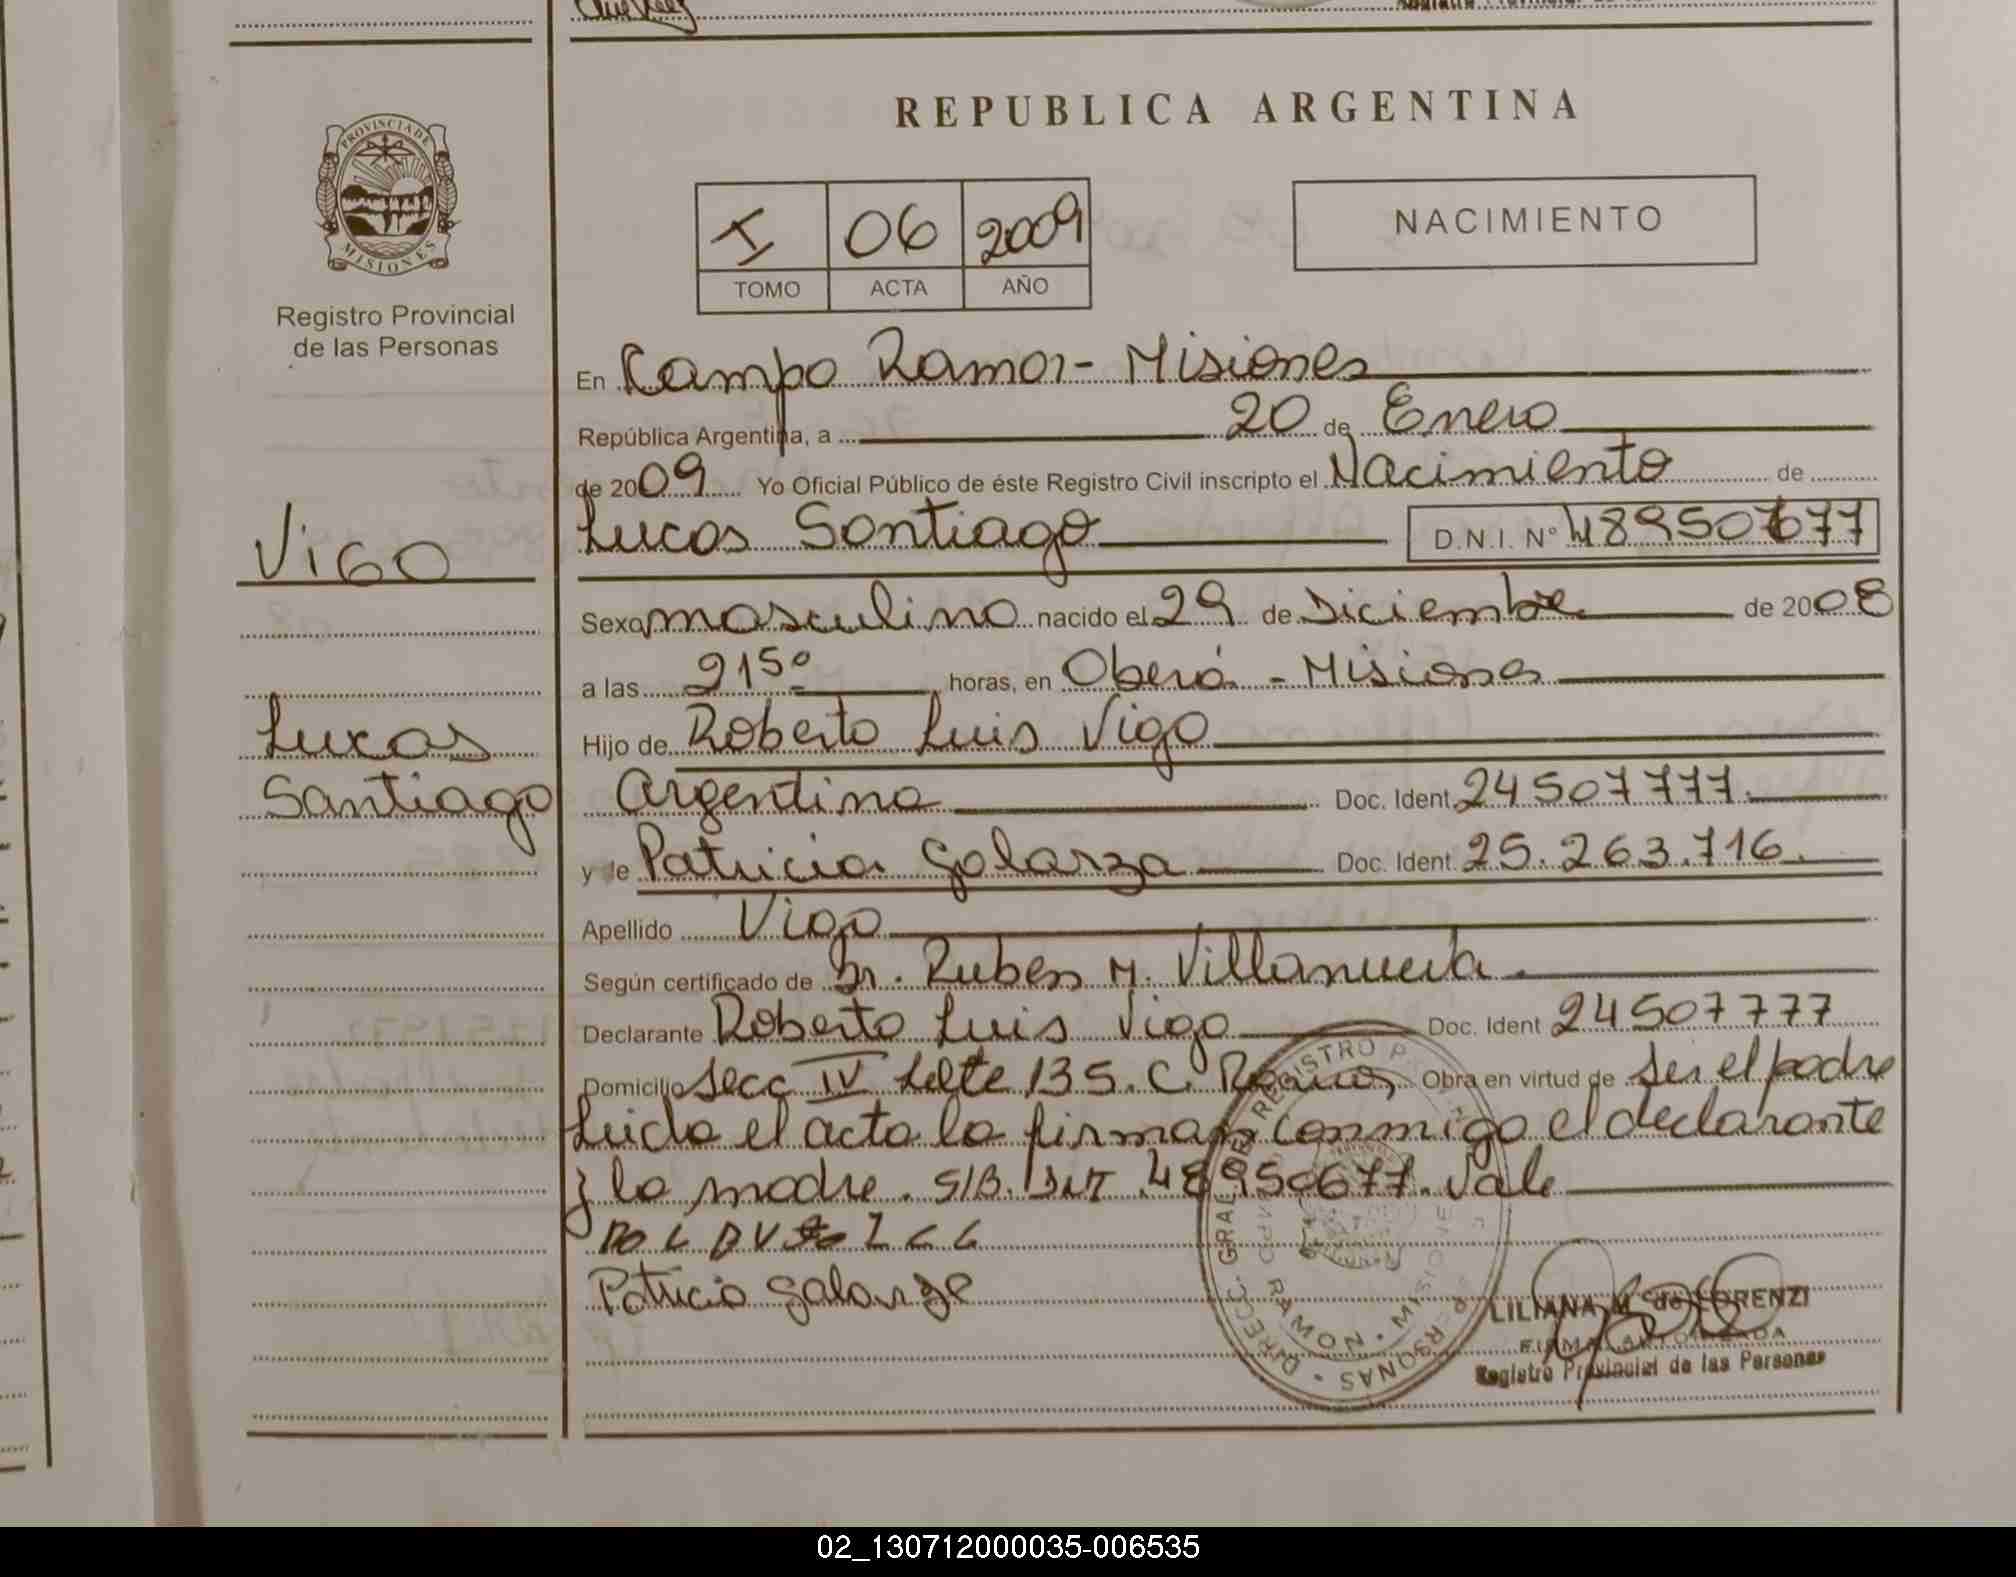 REPUBLICA ARGENTINA
PROVINCIA DE
MISIONES
Registro Provincial
de las Personas
I 06 2009
TOMO ACTA AÑO
NACIMIENTO
En Campo Ramos - Misiones
República Argentina, a 20 de Enero
de 2009 Yo Oficial Público de éste Registro Civil inscripto el Nacimiento de
VIGO
Lucas Santiago D.N.I. Nº
Sexo masculino nacido el 29 de Diciembre de 2008
a las 2150 horas, en Oberá - Misiones
Lucas
Santiago
Hijo de Roberto Luis Vigo
Argentino Doc. Ident. 24507777
y de Patricia Galarza Doc. Ident. 25.263.716.
Apellido Vigo
Según certificado de Dr. Ruben M. Villanueva
Declarante Roberto Luis Vigo Doc. Ident 24507777
Domicilio Secc IV Lote 135. C. Ramos Obra en virtud de Ser el padre
Leida el acta la firman conmigo el declarante
y la madre. S/B. 48950677. Vale
Patricia Galarza
DIRECC. GRAL DE REGISTRO
PERSONAS
RAMON • MISIONES
LILIANA M. de LORENZI
FIRMA AUTORIZADA
Registro Provincial de las Personas
02_130712000035-006535